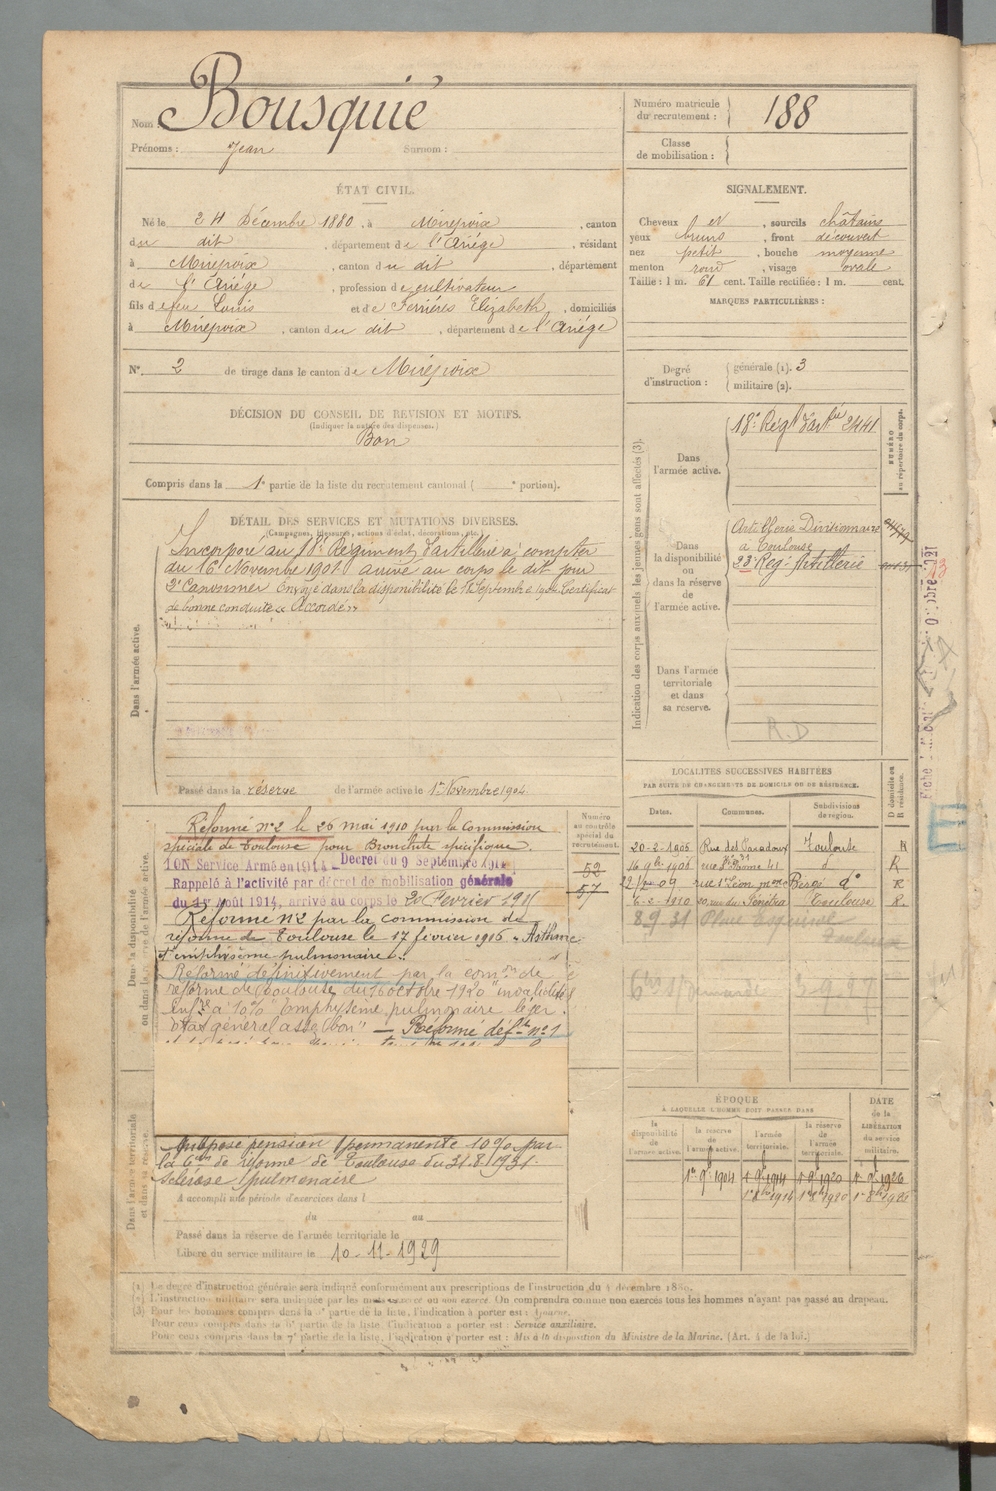 Nom : Bousquié
Prénoms : Jean Surnom :
Numéro matricule du recrutement : 188
Classe de mobilisation :
ÉTAT CIVIL.
Né le 24 Décembre 1880, à Mirepoix, canton
du dit, département de l'Ariège, résidant
à Mirepoix, canton du dit, département
de l'Ariège, profession de cultivateur
fils de feu Louis et de Ferriéres Elizabeth, domiciliés
à Mirepoix, canton du dit, département de l'Ariége
N° 2 de tirage dans le canton de Mirepoix
DÉCISION DU CONSEIL DE RÉVISION ET MOTIFS.
(Indiquer la nature des dispenses.)
Bon
Compris dans la 1e partie de la liste du recrutement cantonal ( e portion).
SIGNALEMENT.
Cheveux et, sourcils châtains
yeux bruns, front découvert
nez petit, bouche moyenne
menton rond, visage ovale
Taille : 1 m. 61 cent. Taille rectifiée : 1 m. cent.
MARQUES PARTICULIÈRES :
Degré d'instruction : générale (1). 3
militaire (2).
DÉTAIL DES SERVICES ET MUTATIONS DIVERSES.
(Campagnes, blessures, actions d'éclat, décorations, etc.)
Dans l'armée active.
Incorporé au 18e Régiment d'artillerie à compter
du 16 Novembre 1901 arrivé au corps le dit jour
2e Canonnier Envoyé dans la disponibilité le Septembre 1904 Certificat
de bonne conduite « Accordé »
Passé dans la réserve de l'armée active le 1er Novembre 1904
Indication des corps auxquels les jeunes gens sont affectés (3).
NUMÉRO au répertoire du corps.
Dans l'armée active.
18e Régt d'artie 2441
Dans la disponibilité ou dans la réserve de l'armée active.
Artillerie Divisionnaire
à Toulouse
23 Reg. Artillerie
Dans l'armée territoriale et dans sa réserve.
R.D
Dans la disponibilité ou dans la réserve de l'armée active.
Réformé n°2 le 26 mai 1910 par la Commission
spéciale de Toulouse pour Bronchite spécifique.
ION Service Armé en 1914 - Décret du 9 Septembre 1914
Rappelé à l'activité par décret de mobilisation générale
du 1er Août 1914, arrivé au corps le 20 Fevrier 191
Réformé n°2 par la commission de
réforme de Toulouse le 17 février 1916 « Asthme
d'emphysème pulmonaire ».
Réformé définitivement par la comon de
réforme de Toulouse du 16 octobre 1920 "invalidité
infre à 10% Emphysème pulmonaire léger.
état général assez bon" — Réformé deft n°1
Numéro au contrôle spécial du recrutement.
52
57
LOCALITÉS SUCCESSIVES HABITÉES
PAR SUITE DE CHANGEMENTS DE DOMICILE OU DE RÉSIDENCE.
Dates. Communes. Subdivisions de région. D domicile ou R résidence.
20-2-1906 Rue des Paradoux Toulouse R
rue Ste Anne d° R
09 rue St Léon d° R
6-2-1910 rue du Pénitra Toulouse R
8.9.31 Place Esquirol
Toulouse
Dans l'armée territoriale et dans sa réserve.
Propose pension permanente 10% par
la Con de réforme de Toulouse du 31.8.1931.
sclérose pulmonaire
A accompli une période d'exercices dans l
du au
Passé dans la réserve de l'armée territoriale le
Libéré du service militaire le 10-11-1929
ÉPOQUE
À LAQUELLE L'HOMME DOIT PASSER DANS
la disponibilité de l'armée active.
la réserve de l'armée active.
l'armée territoriale.
la réserve de l'armée territoriale.
DATE de la LIBÉRATION du service militaire.
1er 9bre 1904 1er 9bre 1914 1er 9bre 1920 1er 9bre 1926
1er 8bre 1914 1er 8bre 1920 1er 8bre 1926
(1) Le degré d'instruction générale sera indiqué conformément aux prescriptions de l'instruction du 4 décembre 1889.
(2) L'instruction militaire sera indiquée par les mots exercé ou non exercé. On comprendra comme non exercés tous les hommes n'ayant pas passé au drapeau.
(3) Pour les hommes compris dans la 5e partie de la liste, l'indication à porter est :
Pour ceux compris dans la 6e partie de la liste, l'indication à porter est : Service auxiliaire.
Pour ceux compris dans la 7e partie de la liste, l'indication à porter est : Mis à la disposition du Ministre de la Marine. (Art. 4 de la loi.)